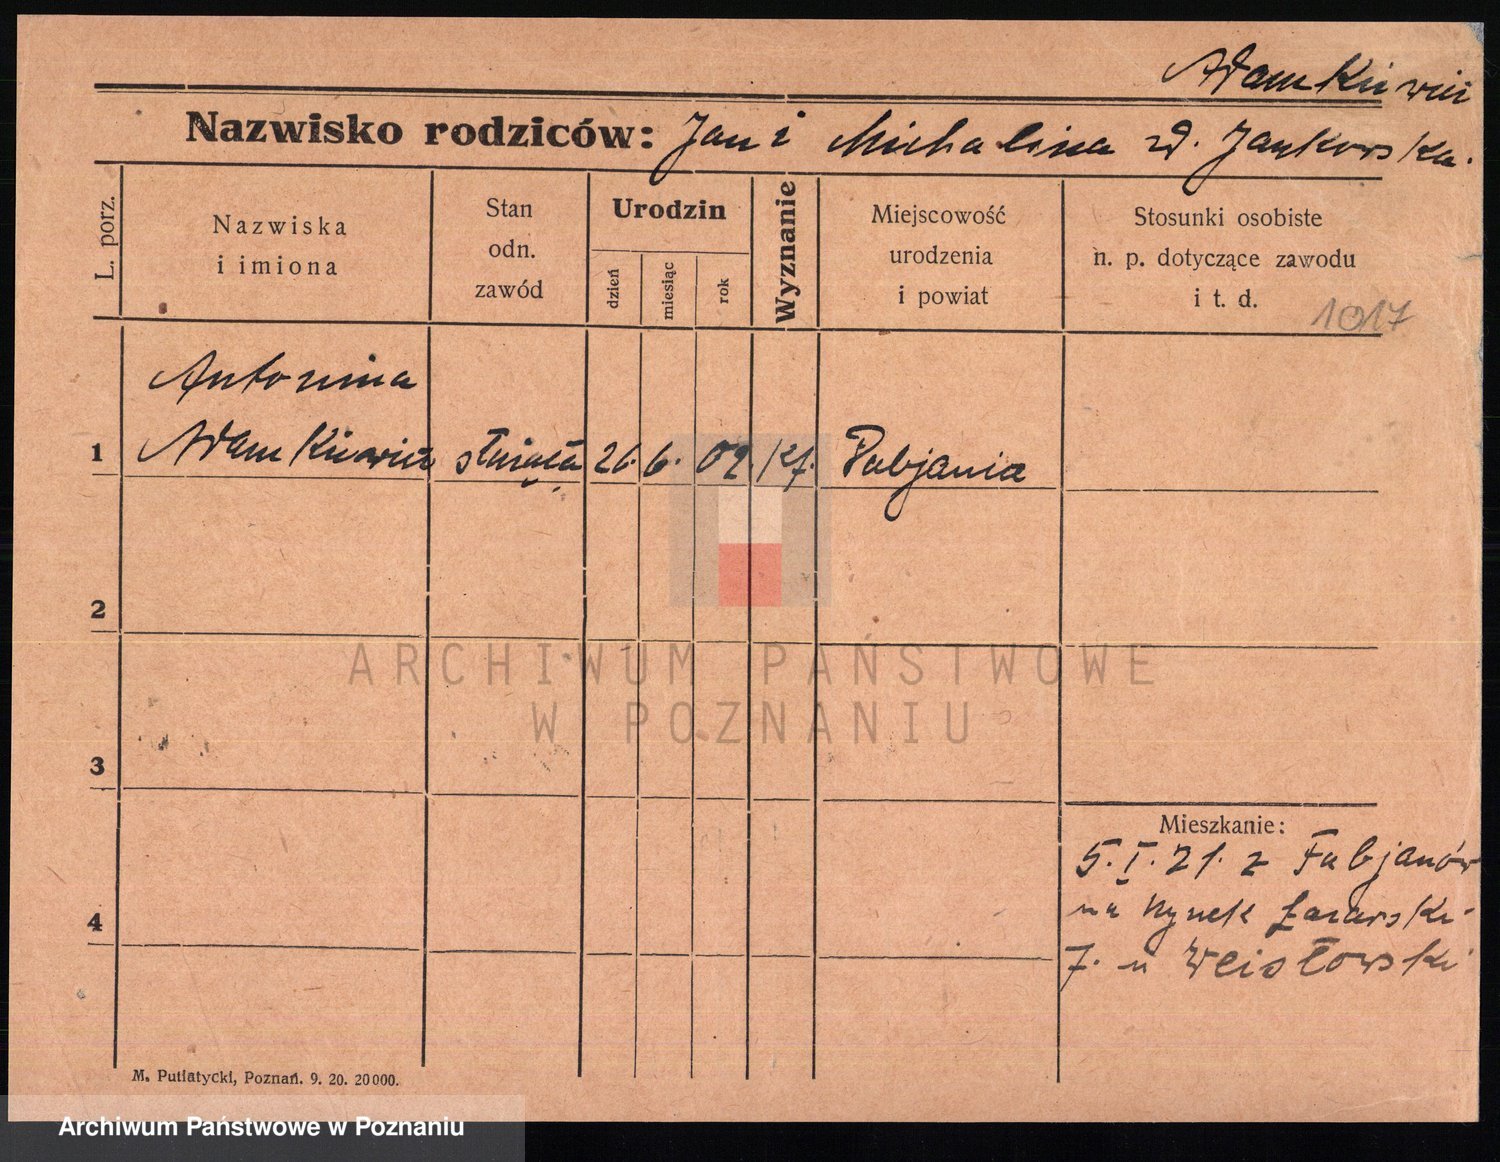 Adamkiewicz
Nazwisko rodziców: Jan i Michalina zd. Jankowska.
L. porz.
Nazwiska
i imiona
Stan
odn.
zawód
Urodzin
dzień
miesiąc
rok
Wyznanie
Miejscowość
urodzenia
i powiat
Stosunki osobiste
n. p. dotyczące zawodu
i t. d.
1017
Antonina
1 Adamkiewicz służąca 26. 6. 02. kf. Pabjania
2
3
4
Mieszkanie:
5. I. 21. z Fabjanów
na Rynek Łazarski
7. u Weisłowski
M. Putiatycki, Poznań. 9. 20. 20000.
ARCHIWUM PAŃSTWOWE
W POZNANIU
Archiwum Państwowe w Poznaniu